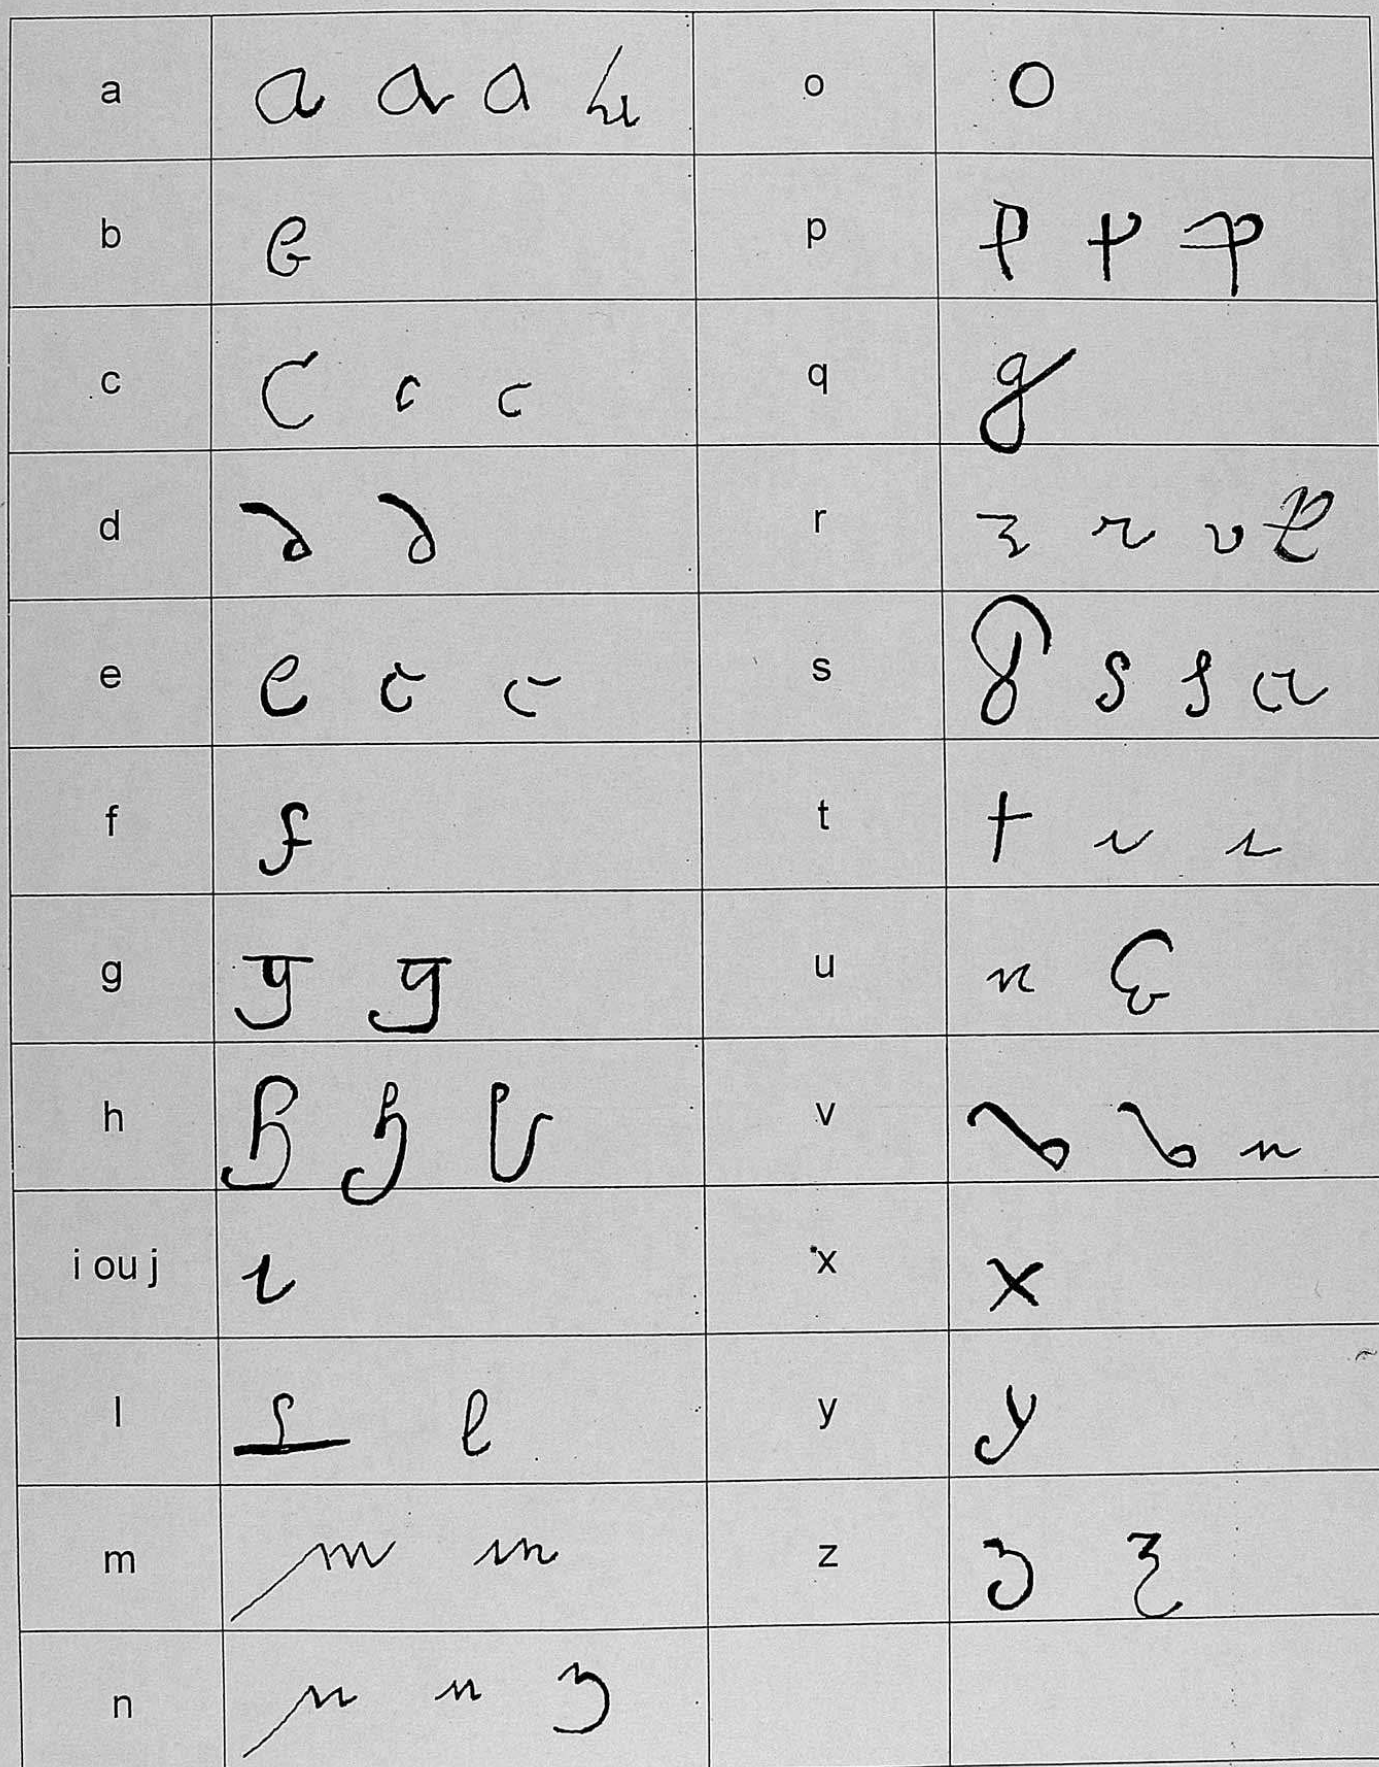 a a a a a o o
b b p p p p
c c c c q q
d d d r r r r r
e e e e s s s s s
f f t t t t
g g g u u u
h h h h v v v v
i ou j i x x
l l l y y
m m m z z z
n n n n